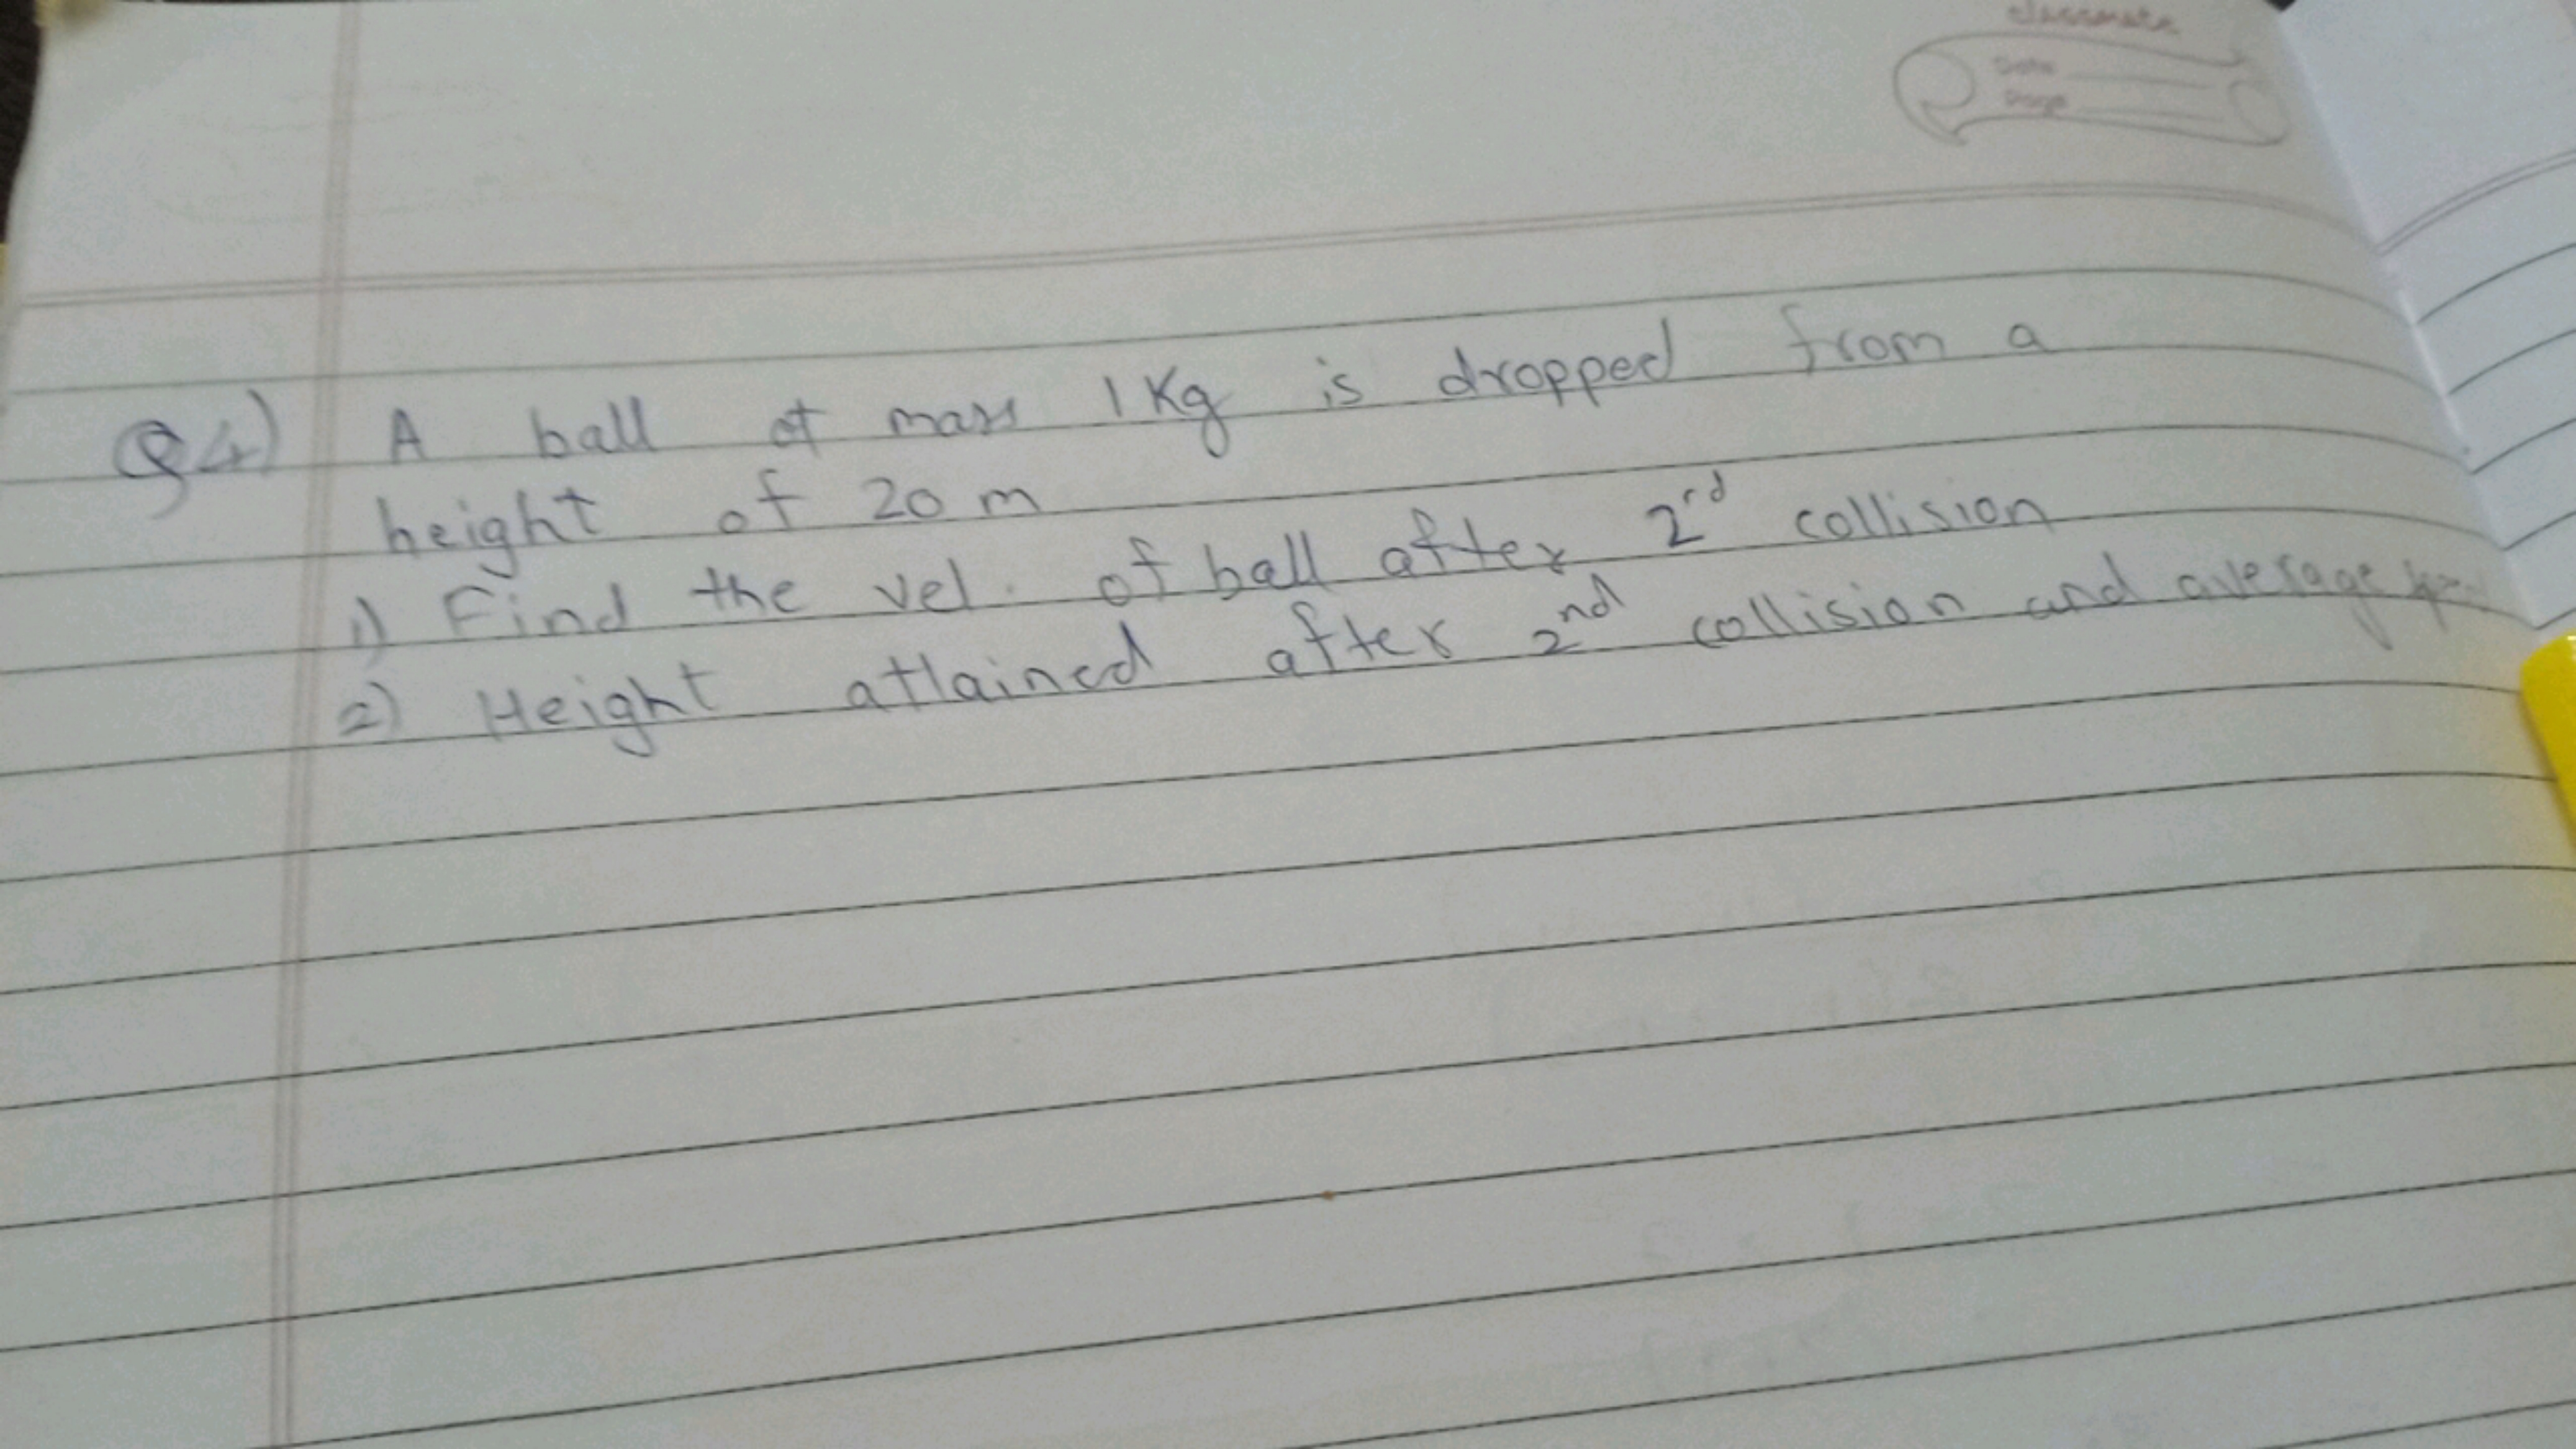 classmate
Date
Page
Q4) A ball of mass 1 Kg is dropped from a
height of 20 m
1) Find the vel. of ball after 2rd collision
2) Height attained after 2nd collision and average